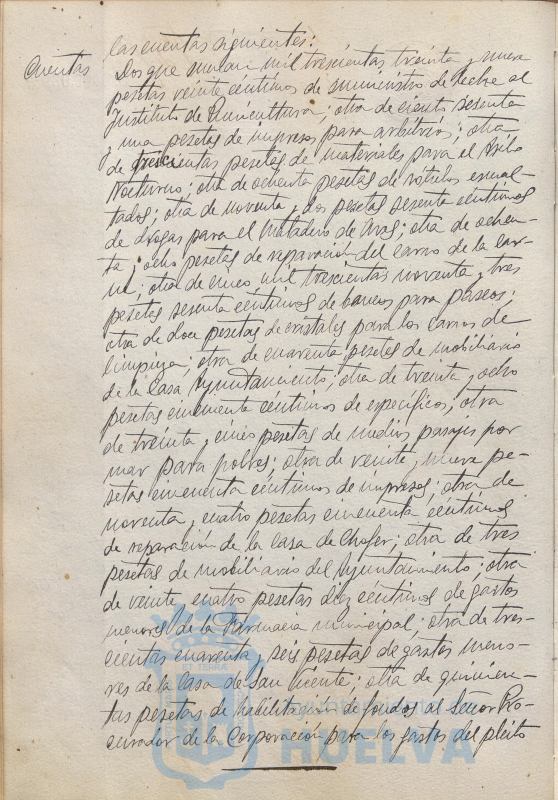 las cuentas siguientes:
Cuentas
Dos que suman mil trescientas treinta y nueve
pesetas veinte céntimos de suministro de leche al
Instituto de Puericultura; otra de ciento sesenta
y una pesetas de impresos para arbitrios; otra
de trescientas pesetas de materiales para el Asilo
Nocturno; otra de ochenta pesetas de rótulos esmal-
tados; otra de noventa y dos pesetas sesenta céntimos
de drogas para el Matadero de Aves; otra de ochen-
ta y ocho pesetas de reparación del carro de la car-
ne; otra de cinco mil trescientas noventa y tres
pesetas sesenta céntimos de bancos para paseos;
otra de doce pesetas de cristales para los carros de
limpieza; otra de cuarenta pesetas de mobiliario
de la Casa Ayuntamiento; otra de treinta y ocho
pesetas cincuenta céntimos de específicos; otra
de treinta y cinco pesetas de medios pasajes por
mar para pobres; otra de veinte y nueve pe-
setas cincuenta céntimos de impresos; otra de
noventa y cuatro pesetas cincuenta céntimos
de reparación de la casa de Chofer; otra de tres
pesetas de mobiliario del Ayuntamiento; otra
de veinte y cuatro pesetas diez céntimos de gastos
menores de la Farmacia municipal; otra de tres-
cientas cuarenta y seis pesetas de gastos meno-
res de la Casa de San Vicente; otra de quinien-
tas pesetas de habilitación de fondos al Señor Pro-
curador de la Corporación para los gastos del pleito
HUELVA